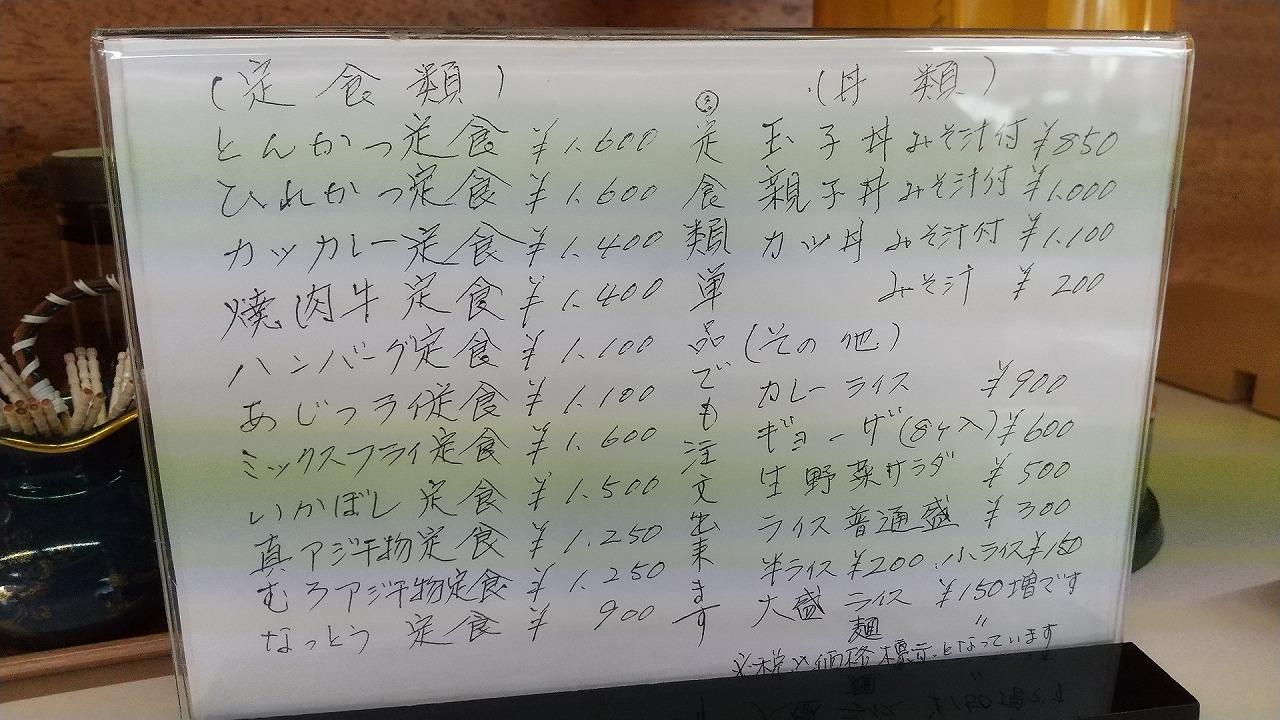 (定食類)
とんかつ定食 ¥1.600
ひれかつ定食 ¥1.600
カツカレー定食 ¥1.400
焼肉牛定食 ¥1.400
ハンバーグ定食 ¥1.100
あじフライ定食 ¥1.100
ミックスフライ定食 ¥1.600
いかぼし定食 ¥1.500
真アジ干物定食 ¥1.250
むろアジ干物定食 ¥1.250
なっとう定食 ¥900
定食類単品でも注文出来ます
(丼類)
玉子丼みそ汁付 ¥850
親子丼みそ汁付 ¥1.000
カツ丼みそ汁付 ¥1.100
みそ汁 ¥200
(その他)
カレーライス ¥900
ギョーザ(8ケ入) ¥600
生野菜サラダ ¥500
ライス普通盛 ¥300
半ライス ¥200、小ライス ¥150
大盛 ライス ¥150増です
麺 〃
※税込価格標示となっています